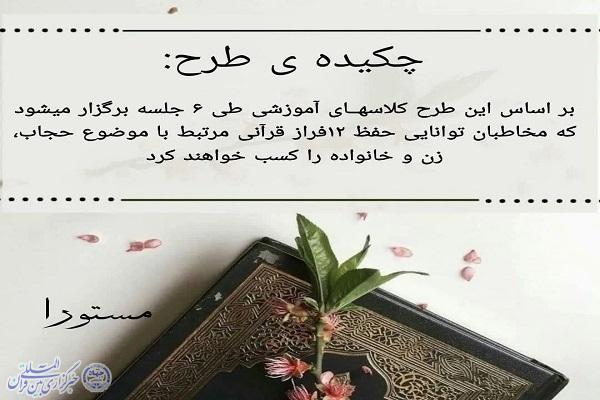 چکیده ی طرح:
بر اساس این طرح کلاسهای آموزشی طی ۶ جلسه برگزار میشود
که مخاطبان توانایی حفظ ۱۲فراز قرآنی مرتبط با موضوع حجاب،
زن و خانواده را کسب خواهند کرد
مستورا
خبرگزاری بین المللی قرآن